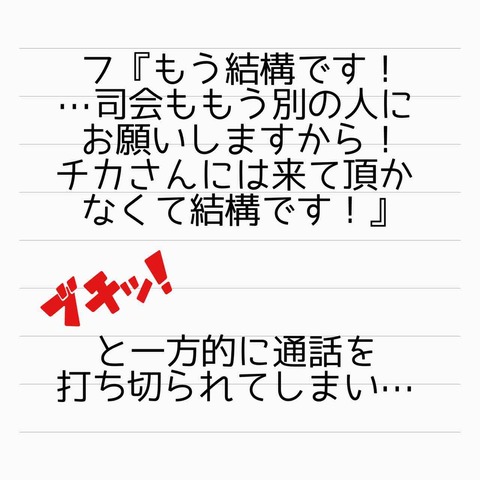 フ『もう結構です！
…司会ももう別の人に
お願いしますから！
チカさんには来て頂か
なくて結構です！』
ブチッ！
と一方的に通話を
打ち切られてしまい…